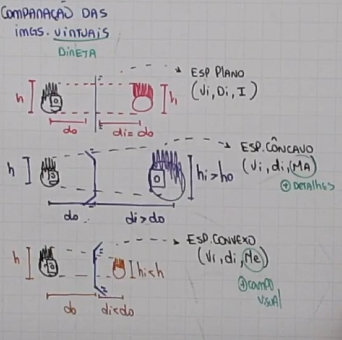 COMPARAÇÃO DAS
IMGS. VIRTUAIS
DIRETA
ESP PLANO
(Vi, Di, I)
h
h
do
di=do
ESP. CÔNCAVO
(Vi, di, MA)
⊕ DETALHES
h
hi>ho
do
di>do
ESP. CONVEXO
(Vi, di, Me)
⊕ CAMPO
VISUAL
h
hi<h
do
di<do